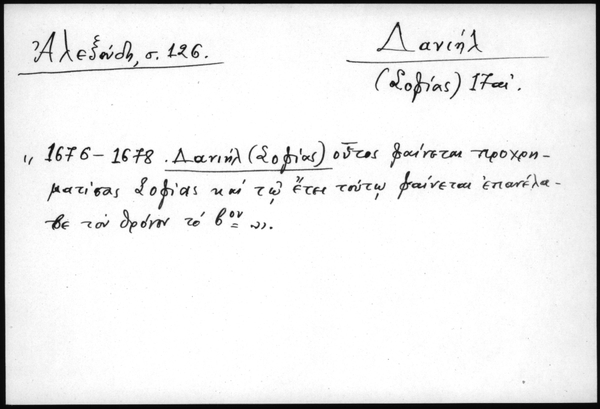 Ἀλεξούδη, σ. 126.
Δανιήλ
(Σοφίας) 17 αἰ.
"1676-1678. Δανιήλ (Σοφίας) οὗτος φαίνεται προχρη-
ματίσας Σοφίας καί τῷ ἔτει τούτῳ φαίνεται ἐπανέλα-
βε τόν θρόνον τό βον".